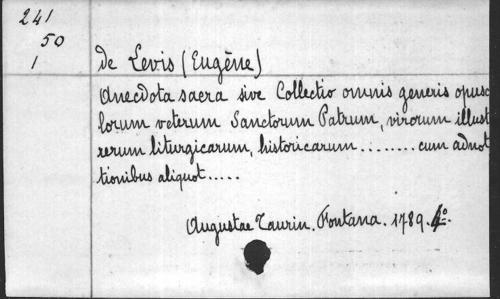 241
50
1
de Levis (Eugène)
Anecdota sacra sive Collectio omnis generis opusc
lorum veterum Sanctorum Patrum, virorum illust
rerum liturgicarum, historicarum........cum adnot
tionibus aliquot.....
Augustae Taurin. Fontana. 1789. 4°.